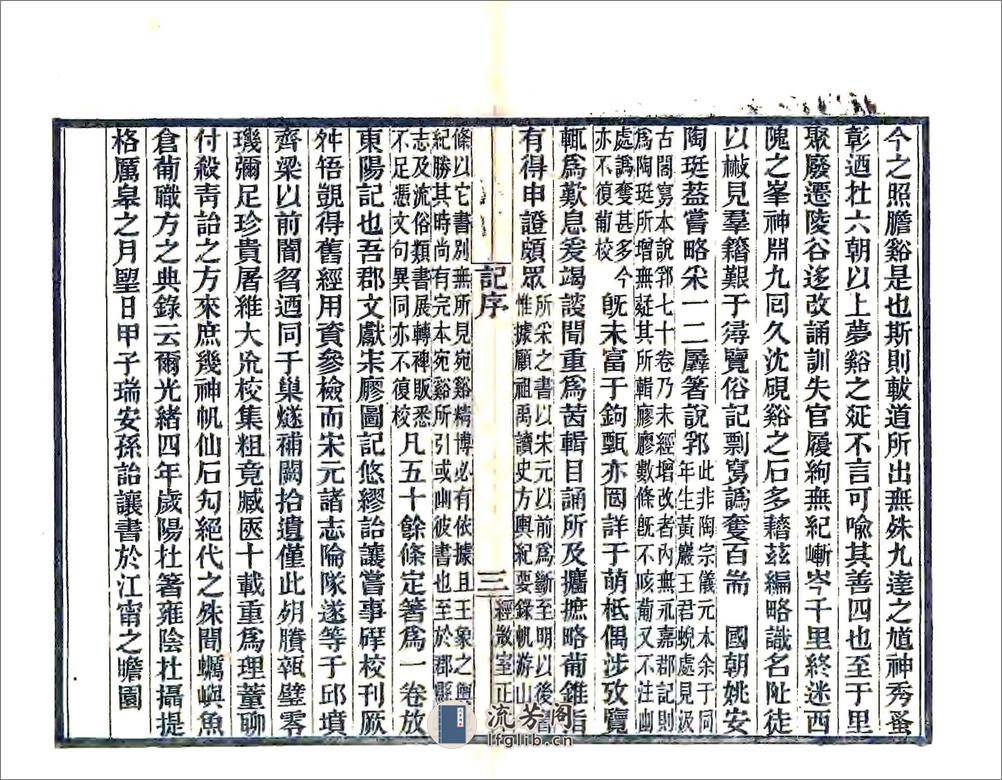 今之照膽谿是也斯則載道所出無殊九逵之馗神秀蚤
彰迺杜六朝以上夢谿之莚不言可喻其善四也至于里
聚廢遷陵谷迻改誦訓失官履絢無紀嶄岑千里終迷西
隗之峯神淵九囘久沈硯谿之石多藉茲編略識名阯徒
以㪚見羣籍艱于尋覽俗記剽寫譌奪百耑　國朝姚安
陶珽葢嘗略采一二羼箸說郛此非陶宗儀元本余于同
年生黃巖王君蜺處見汲
古閣寫本說郛七十卷乃未經增改者內無永嘉郡記則
爲陶珽所增無疑其所輯廖廖數條旣不咳葡又不注出
處譌奪甚多今
亦不復葡校
旣未富于鉤甄亦罔詳于萌柢偶涉攷覽
輒爲歎息爰竭諓聞重爲茵輯目誦所及攟摭略葡錐指
有得申證頗眾所采之書以宋元以前爲斷至明以後書
惟據顧祖禹讀史方輿紀要錄帆游山一
記序
三
經㪚室正
條以它書別無所見宛谿精博必有依據且王象之輿
紀勝其時尚有完本宛谿所引或出彼書也至於郡縣
志及流俗類書展轉裨販悉
不足憑文句異同亦不復校
凡五十餘條定著爲一卷放
東陽記也吾郡文獻宋廖圖記悠繆詒讓嘗事㪇校刊厥
舛牾覬得舊經用資參檢而宋元諸志隃隊遂等于邱墳
齊梁以前闇曶迺同于巢燧補闕拾遺僅此殘賸瓻璧零
璣彌足珍貴屠維大沇校集粗竟臧匧十載重爲理董聊
付殺靑詒之方來庶幾神帆仙石匃絕代之殊聞蠣嶼魚
倉葡職方之典錄云爾光緒四年歲陽杜著雍陰杜攝提
格厲皋之月朢日甲子瑞安孫詒讓書於江甯之瞻園
流芳閣
lfglib.cn